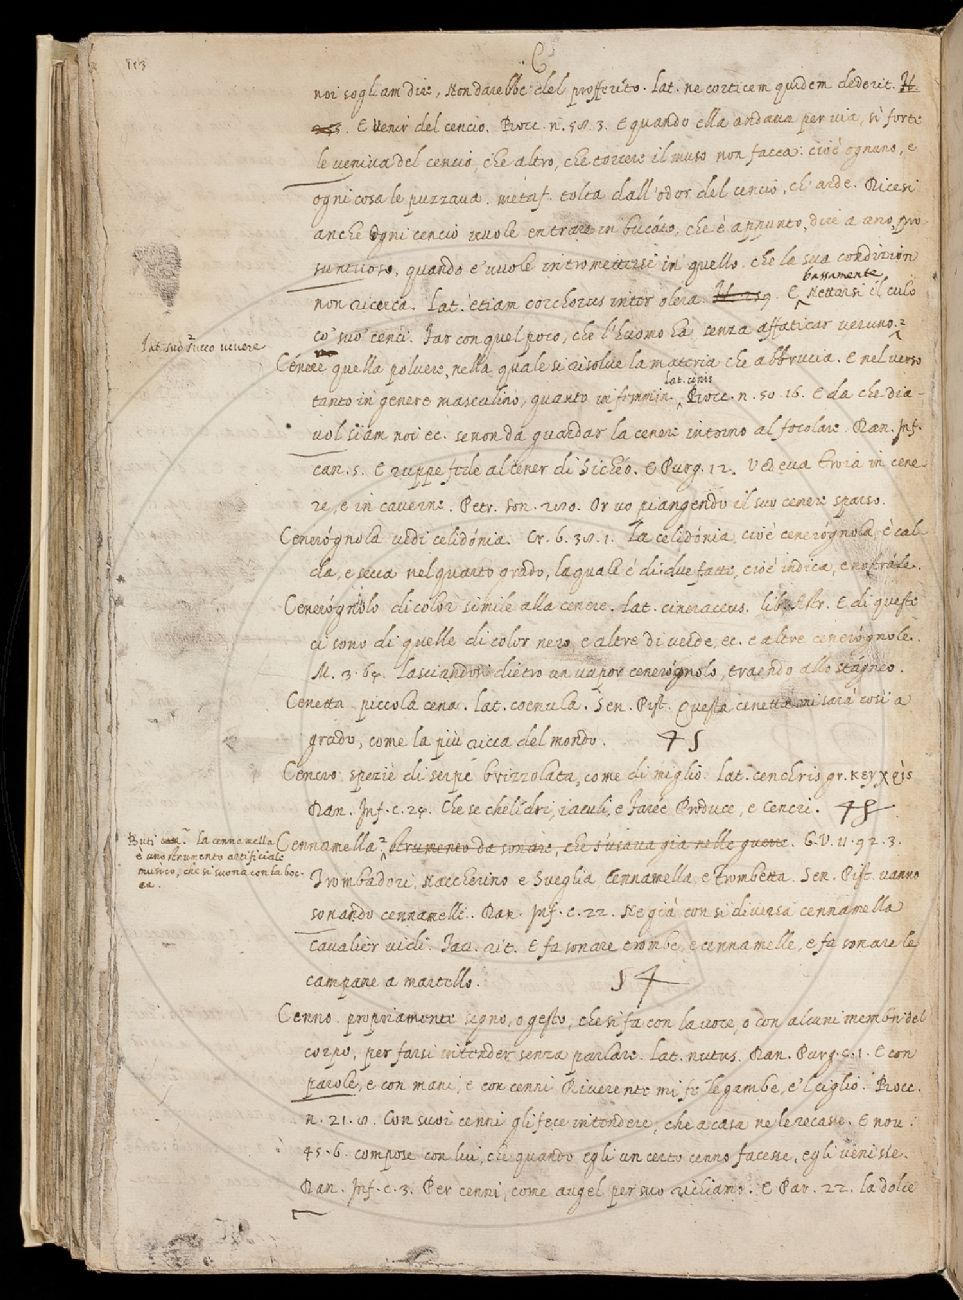 153
C
noi sogliam dire, Non darebbe del profferito. Lat. ne corticem quidem dederit.
E Venir del cencio. Bocc. n. 58. 3. E quando ella andava per via, sì forte
le veniva del cencio, che altro, che torcere il muso non facea: cioè ognuno, e
ogni cosa le puzzava. metaf. tolta dall'odor del cencio, ch'arde. Dicesi
anche Ogni cencio vuole entrare in bucato, che è appunto, dire a uno, pro-
suntuoso, quando e' vuole intromettersi in quello, che la sua condizion
bassamente
non ricerca. Lat. etiam corchorus inter olera. H 259. E Nettarsi il culo
co' suo' cenci. Far con quel poco, che l'huomo ha senza affaticar veruno.
Lat. suo succo vivere
Cénere quella polvere, nella quale si risolve la materia che abbrucia. E nel verso
lat. cinis
tanto in genere masculino, quanto in femmin. Bocc. n. 50. 16. E da che dia-
vol siam noi ec. se non da guardar la cenere intorno al focolare. Dan. Inf.
can. 5. E ruppe fede al cener di Sichéo. E Purg. 12. Vedeva Troia in cene-
re, e in caverne. Petr. Son. 280. Or vo piangendo il suo cenere sparso.
Cenerógnola vedi celidónia. Cr. 6. 38. 1. La celidónia, cioè cenerógnola, è cal-
da, e secca nel quarto grado, la quale è di due fatte, cioè indica, e nostrále.
Cenerógnolo di color simile alla cenere. Lat. cineraceus. lib. Astr. E di queste
ci sono di quelle di color nero, e altre di verde, ec. e altre cenerógnole.
M. 3. 64. Lasciandosi dietro un vapor cenerógnolo, traendo allo stagneo.
Cenetta piccola cena. Lat. coenula. Sen. Pist. Questa cenetta mi sarà così a
grado, come la più ricca del mondo. 4 S
Cencro spezie di serpe brizzolata, come di miglio. Lat. cenchris gr. κεγχρὶς
Dan. Inf. c. 24. Che se chelidri, iaculi, e faree Produce, e Cencri. 4 S
Buti La cennamella
è uno strumento artificiale
musico, che si suona con la boc-
ca.
Cennamella strumento da sonare, che s'usava già nelle guerre. G. V. 11. 92. 3.
Trombadori, Naccherino e Sveglia Cennamella e Trombetta. Sen. Pist. vanno
sonando cennamelle. Dan. Inf. c. 22. Ne già con sì diversa cennamella
Cavalier vidi. Tav. rit. E fa sonare trombe, e cennamelle, e fa sonare le
campane a martello. S 4
Cenno. propriamente segno, o gesto, che si fa con la voce, o con alcuni membri del
corpo, per farsi intender senza parlare. Lat. nutus. Dan. Purg. c. 1. E con
parole, e con mani, e con cenni Riverenti mi fe le gambe, e 'l ciglio. Bocc.
n. 21. 8. Con suoi cenni gli fece intendere, che a casa ne le recasse. E nov.
45. 6. compose con lui, che quando egli un certo cenno facesse, egli venisse.
Dan. Inf. c. 3. Per cenni, come augel per suo richiamo. E Par. 22. La dolce